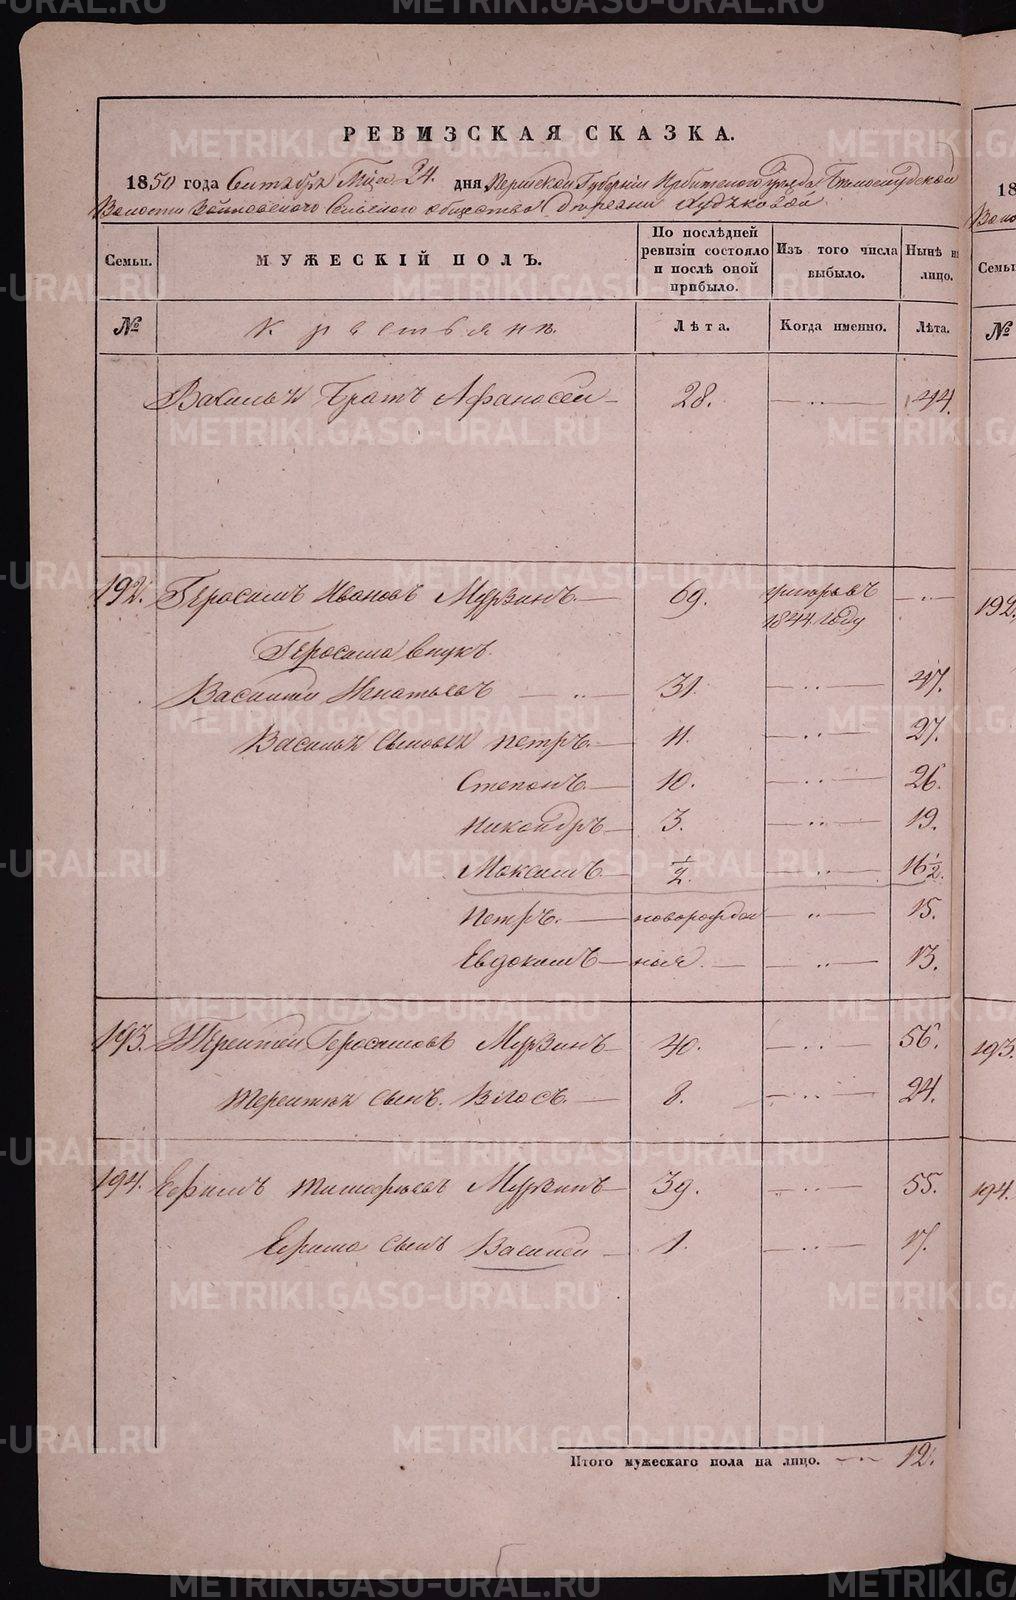 РЕВИЗСКАЯ СКАЗКА.
1850 года Сентября Мца 24. дня Пермской Губернiи Ирбитского Уѣзда Бѣлослудской
Волости Сельского общества Деревни Худяковой
Семьи. МУЖЕСКIЙ ПОЛЪ. По послѣдней ревизiи состояло и послѣ оной прибыло. Изъ того числа выбыло. Нынѣ на лицо.
№ Крестьяне. Лѣта. Когда именно. Лѣта.
Василья Братъ Афанасей 28. — „ — 44.
192. Геросимъ Ивановъ Мурзинъ. — 69. умеръ въ 1844 году — „ —
Геросима внукъ
Василiй Игнатьевъ — „ — 31. — „ — 47.
Василья сыновья Петръ. — 11. — „ — 27.
Степанъ. — 10. — „ — 26.
Никандръ — 3. — „ — 19.
Максимъ. — 1/2. — „ — 16 1/2.
Петръ. — новорожден — „ — 15.
Евдокимъ — ныя. — „ — 13.
193. Терентей Геросимовъ Мурзинъ — 40. — „ — 56.
Терентья сынъ. Власъ. — 8. — „ — 24.
194. Ефимъ Тимофеевъ Мурзинъ — 39. — „ — 55.
Ефима сынъ Василей — 1. — „ — 17.
Итого мужескаго пола на лицо. — 12.
18
Воло
Семьи
№
192.
193.
194.
METRIKI.GASO-URAL.RU